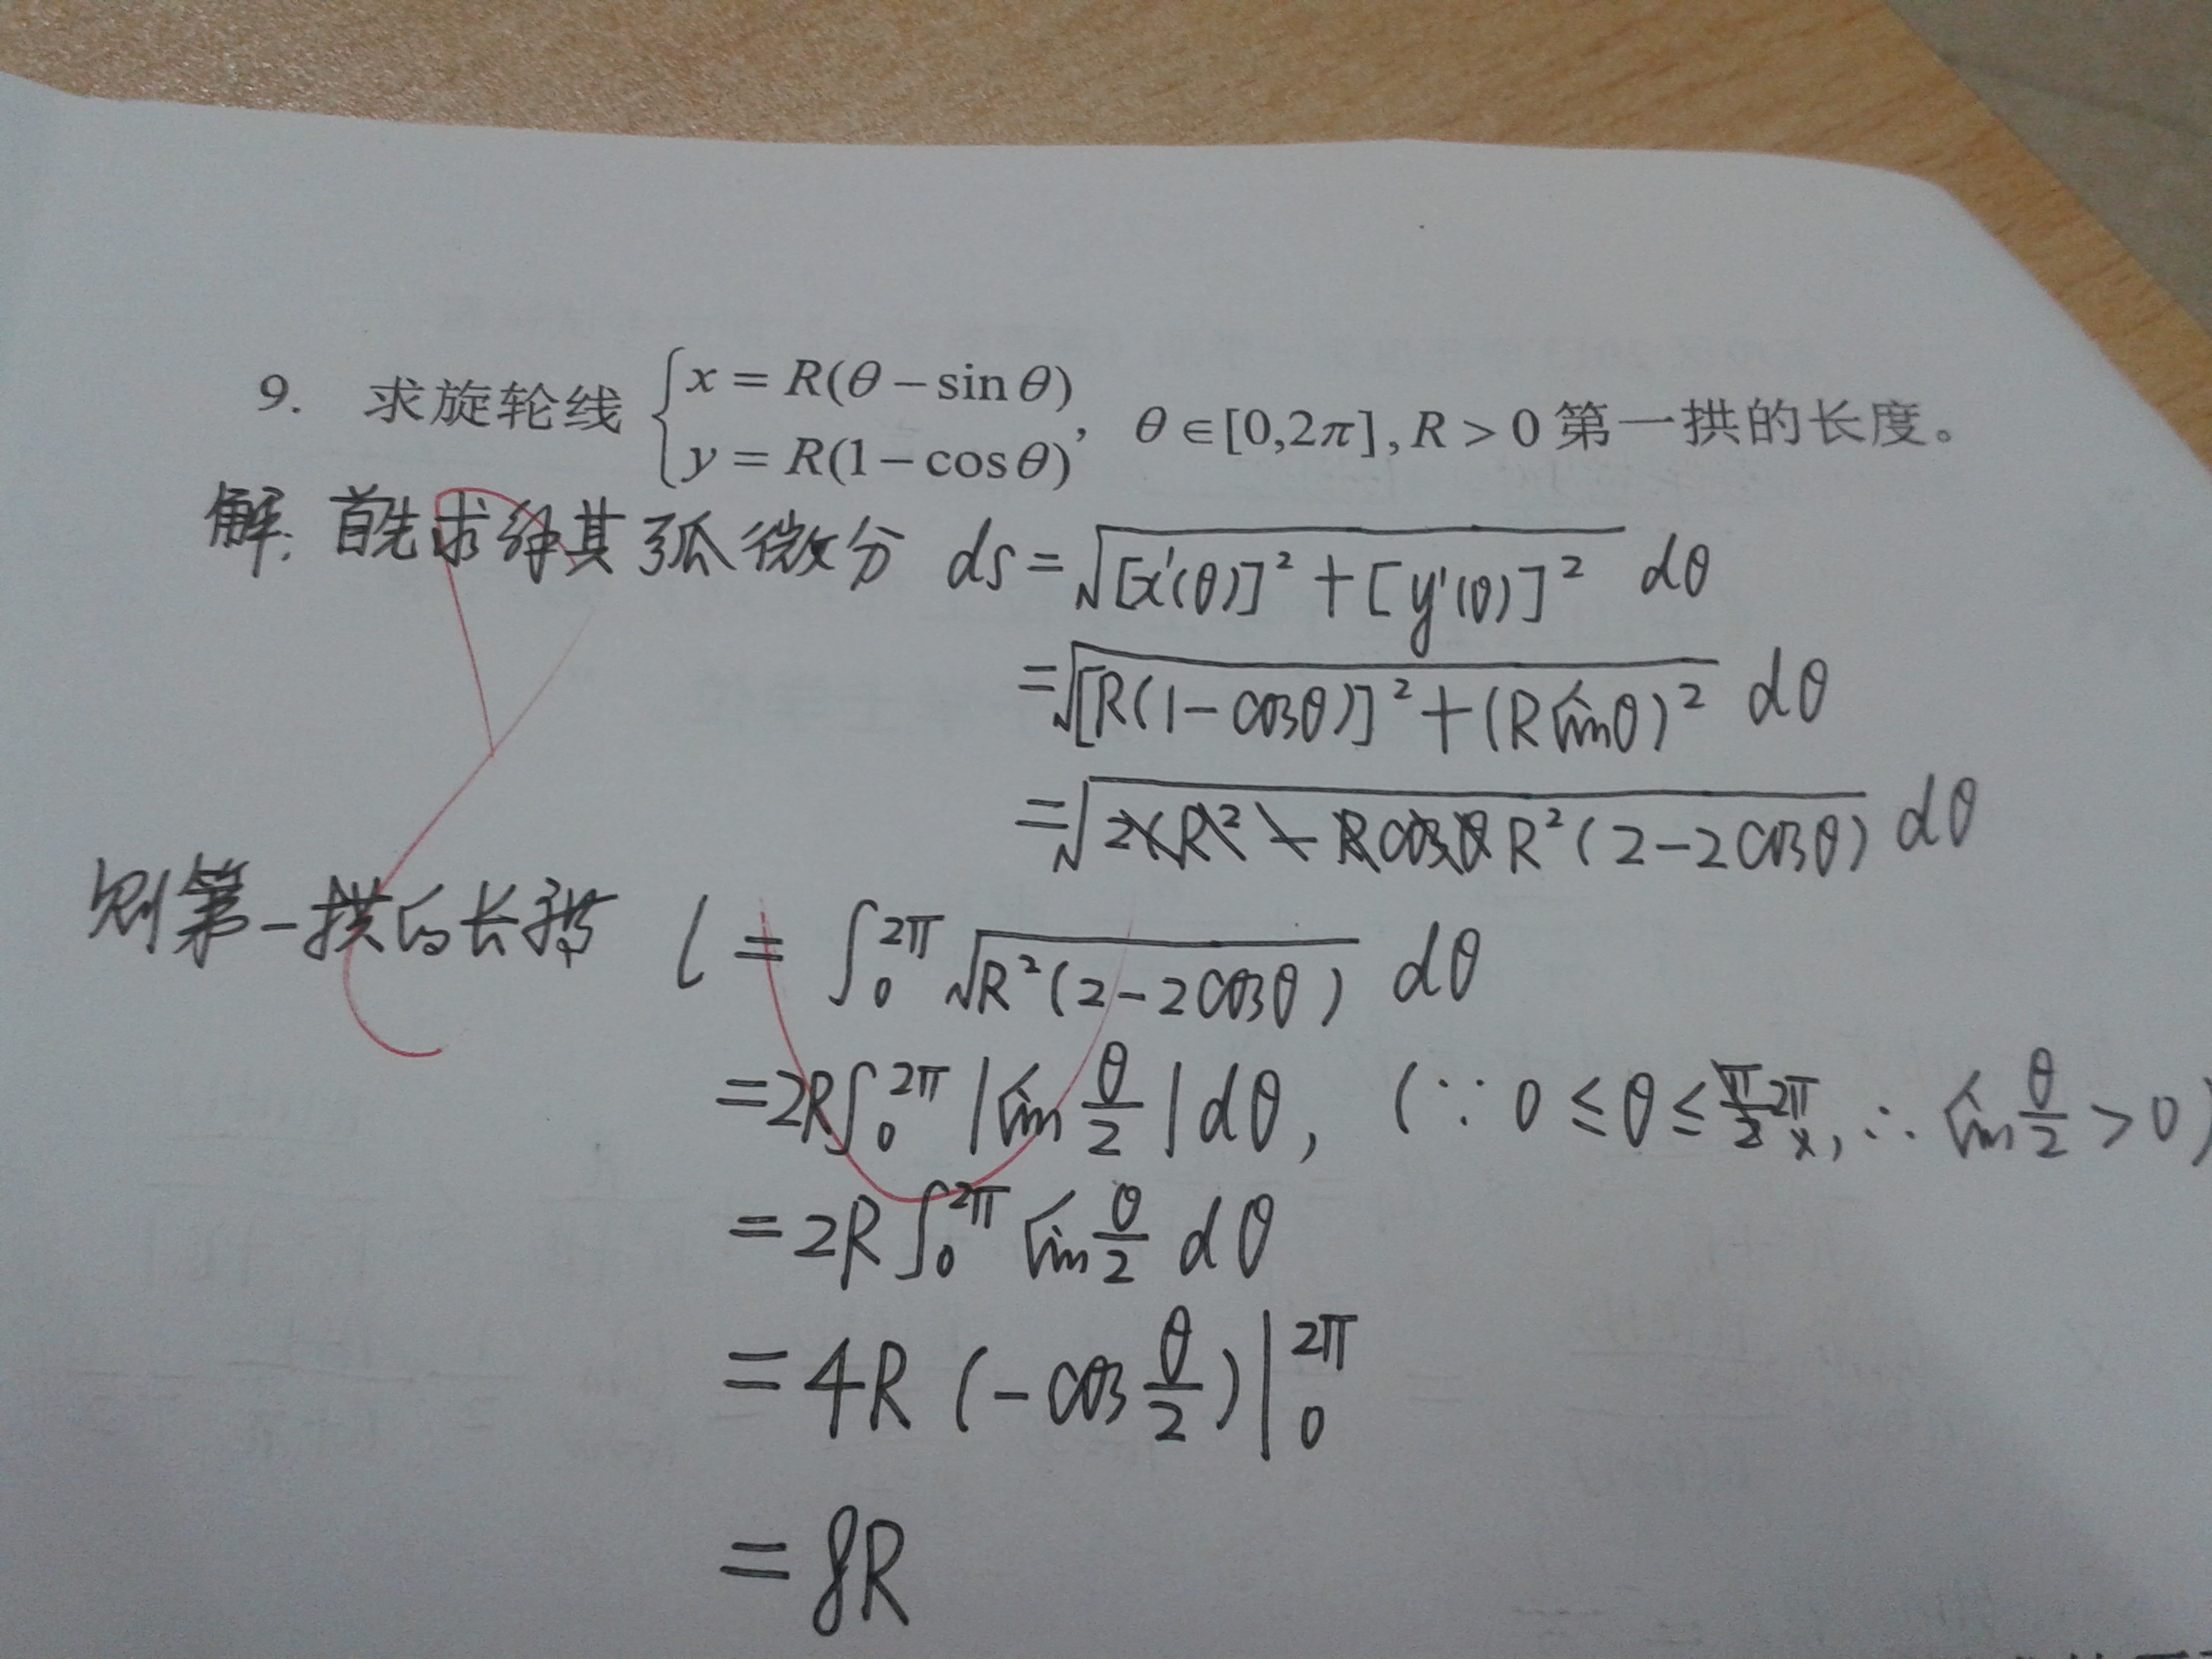 9. 求旋轮线 { x = R(θ − sin θ)
y = R(1 − cos θ) , θ ∈ [0,2π], R > 0 第一拱的长度。
解: 首先求其弧微分 ds = √([x'(θ)]² + [y'(θ)]²) dθ
= √([R(1 − cosθ)]² + (R sinθ)²) dθ
= √(R²(2 − 2cosθ)) dθ
则第一拱的长 l = ∫₀^2π √(R²(2 − 2cosθ)) dθ
= 2R∫₀^2π |sin θ/2| dθ, (∵ 0 ≤ θ ≤ 2π, ∴ sin θ/2 > 0)
= 2R ∫₀^2π sin θ/2 dθ
= 4R (− cos θ/2) |₀^2π
= 8R